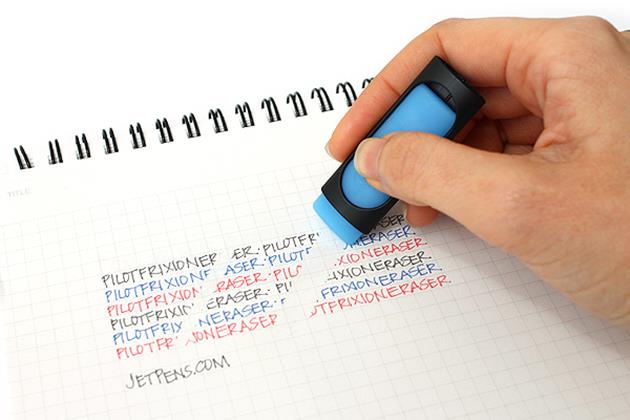 TITLE
PILOTFRIXIONER ER·PILOTFR ASER
PILOTFRIXION ASER·PILOT ERASER.
PILOTFRIXION ERASER·PIL XIONERASER.
PILOTFRIXI ERASER·PI IXIONERASER.
PILOTFRIX NERASER FRIXIONERASER.
PILOTFR IONERASER OTFRIXIONERASER.
JETPENS.COM